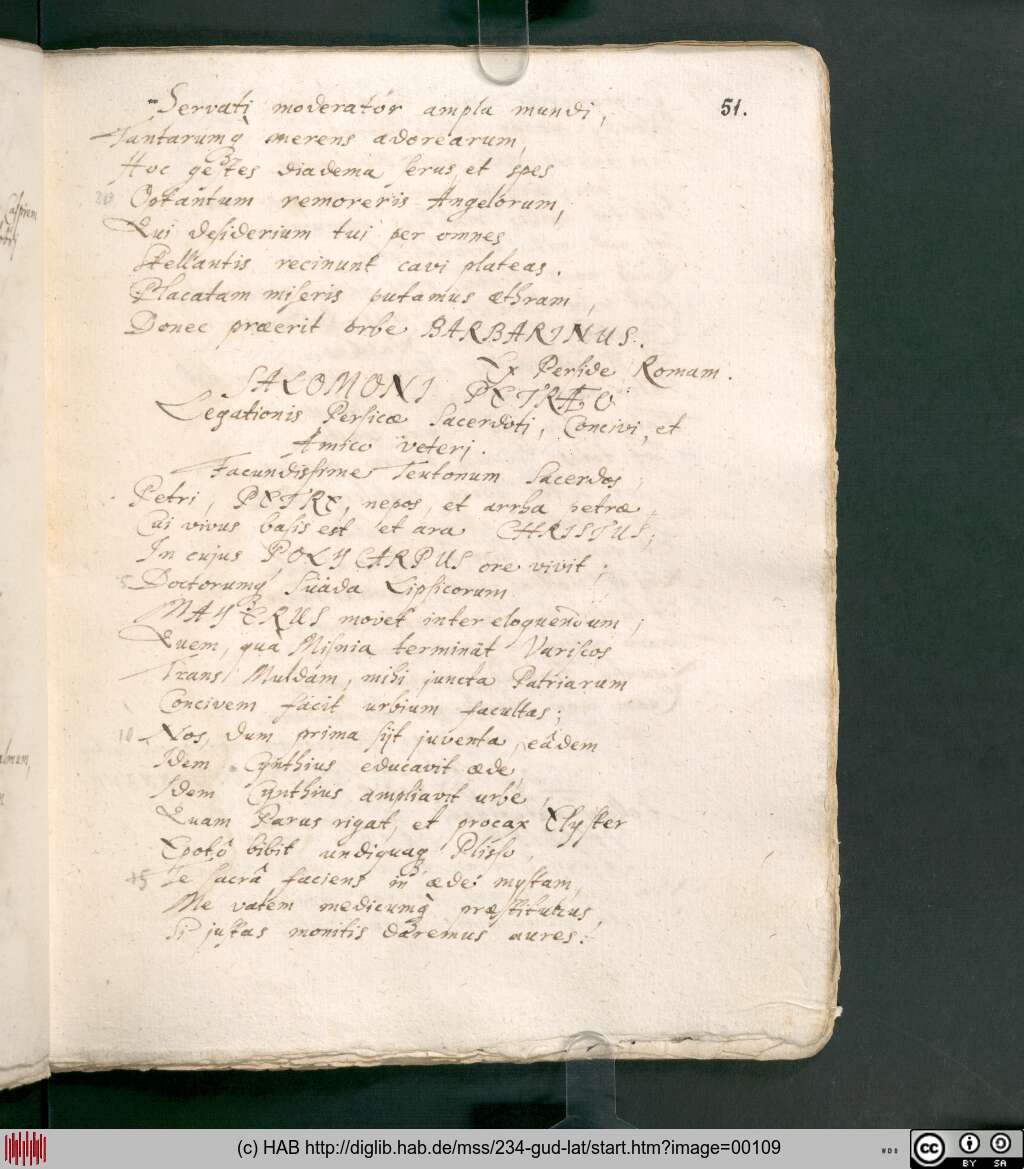 51.
Servati moderator ampla mundi,
Tantarumq́ merens adorearum,
Hoc gestes diadema serus, et spes
Optantum remoreris Angelorum,
Qui desiderium tui per omnes
Stellantis recinunt cavi plateas.
Placatam miseris putamus æthram,
Donec præerit orbe BARBARINUS.
Ex Perside Romam.
SALOMONI PETRÆO
Legationis Persicæ Sacerdoti, Concivi, et
Amico veteri.
Facundissime Teutonum Sacerdos,
Petri, PETRE, nepos, et arrha petræ,
Cui vivus basis est et ara CHRISTUS;
In cujus POLYCARPUS ore vivit;
5 Doctorumq́ Süada Lipsicorum
MAYERUS movet inter eloquendum;
Quem, quà Misnia terminat Variscos
Trans Muldam, mihi juncta Patriarum
Concivem facit urbium facultas;
10 Nos, dum prima sijt juventa, eâdem
Idem Cynthius educavit æde,
Idem Cynthius ampliavit urbe,
Quam Parus rigat, et procax Elyster
Epotô bibit undiquaq Plisso,
15 Te sacrâ faciens in æde mystam,
Me vatem medicumq́ præstiturus,
Si justas monitis daremus aures:
Caspium
(c) HAB http://diglib.hab.de/mss/234-gud-lat/start.htm?image=00109
cc BY SA